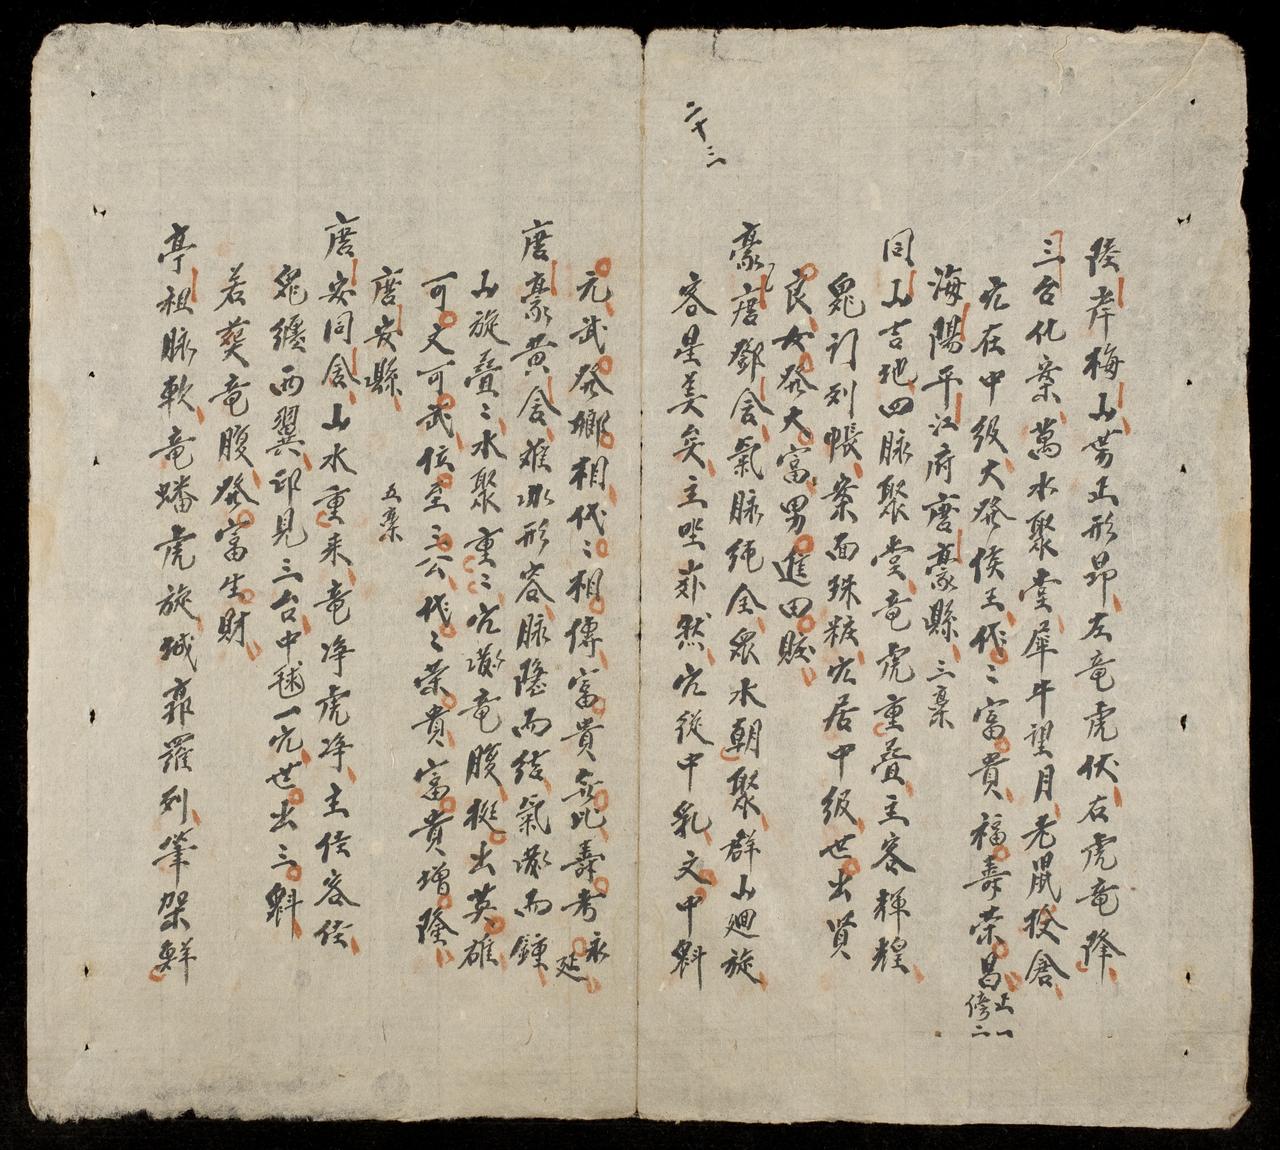 二十三
陵岸梅山蓦正形昂左竜虎伏右虎竜降
三台化案萬水聚堂犀牛望月老鼠投倉
穴在中級大發侯王代〻富貴福壽荣昌 正一 傍二
海陽平江府唐豪縣 三稾
同山吉地四脉聚堂竜虎重叠主客輝煌
鬼訂列帳案面珠粧穴居中級世出賢
良女發大富男進田賍
豪唐鄧舍氣脉純全眾水朝聚群山廻旋
客星美矣主坐䓁然穴從中乳文中魁
元武發鄉相代〻相傳富貴無比壽考永延
唐豪黄舍难㳄形容脉隱而結氣㳄而鍾
山旋叠〻水聚重〻穴㳄竜腹挺出英雄
可文可武位至三公代〻荣貴富貴增隆
唐安縣 五稾
唐安同舍山水重来竜净虎净主侄客侄
鬼纏两翼印見三台中毬一穴世出三魁
若葵竜腹發富生財
亭祖脉軟竜蟠虎旋城郭羅列筆架鮮